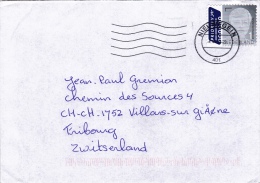 Jean-Paul Gremion
Chemin des Sources 4
CH-CH-1752 Villars-sur-glÃ¢ne
Fribourg
Zwitserland